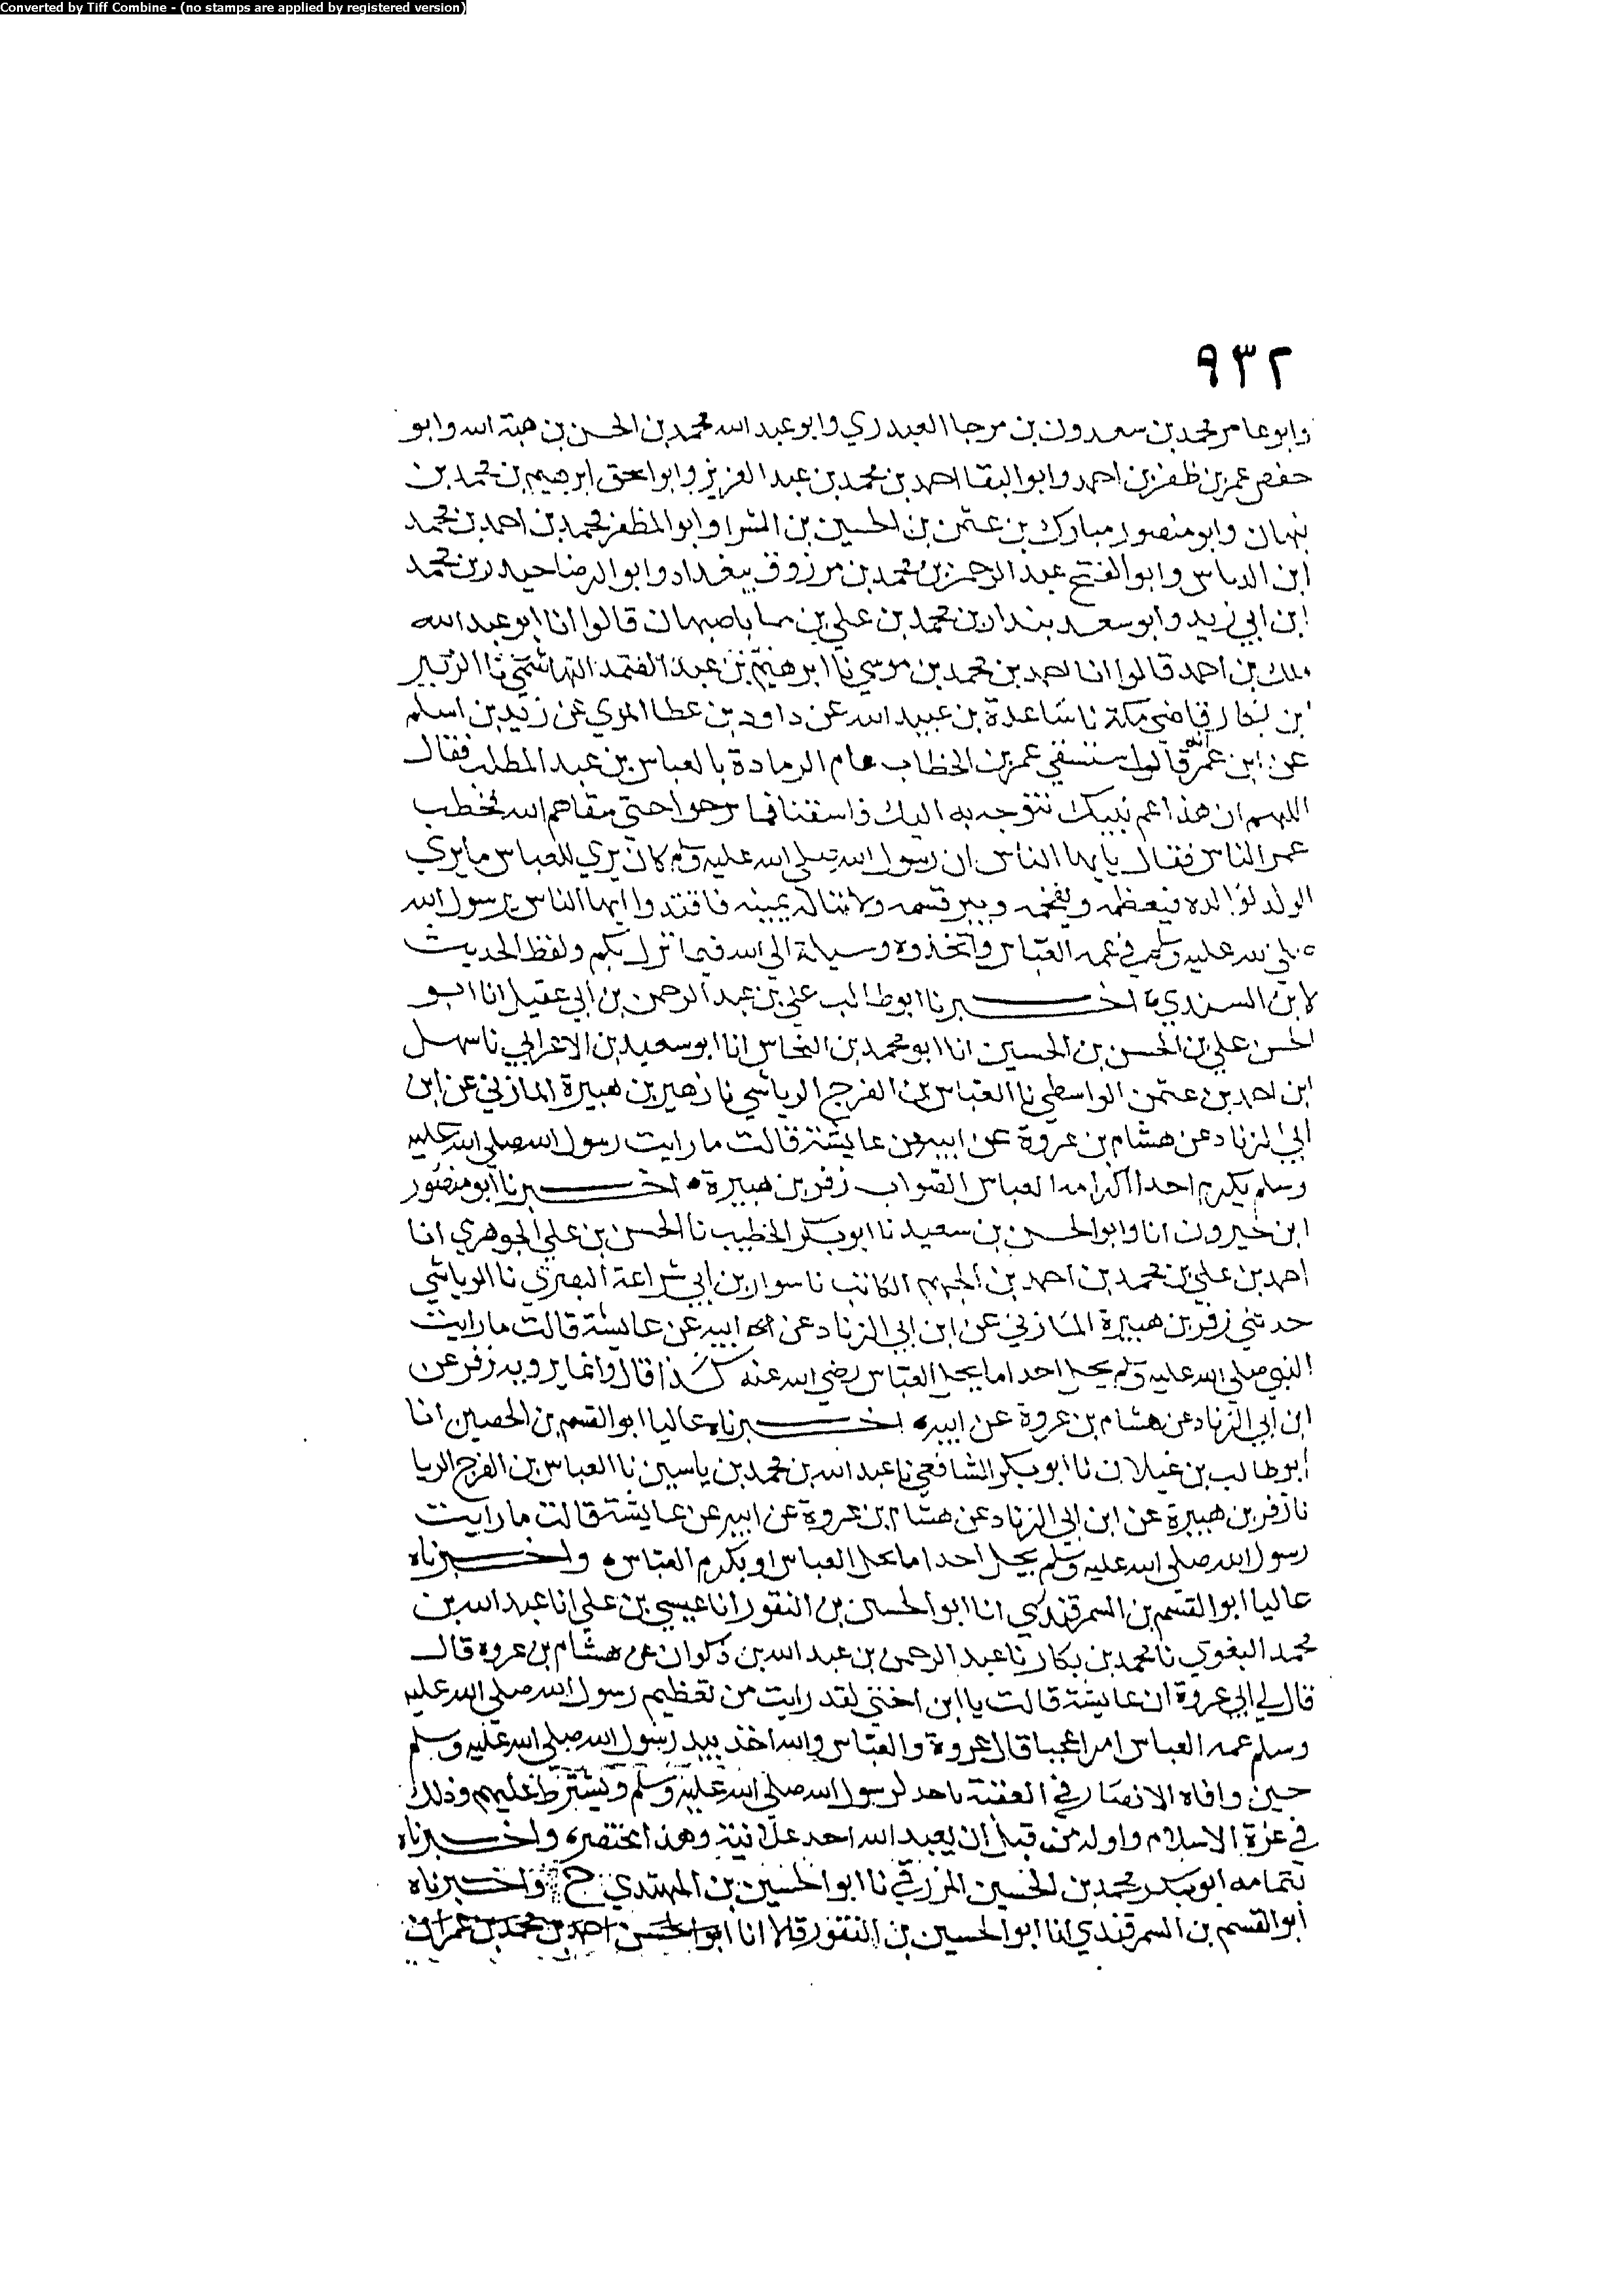 Converted by Tiff Combine - (no stamps are applied by registered version)
٩٣٢
وابو عامر محمد بن سعدون بن مرجا العبدري وابو عبد الله محمد بن الحسن بن هبة الله وابو
حفص عمر بن ظفر بن احمد وابو البقا احمد بن محمد بن عبد العزيز وابو اسحق ابرهيم بن محمد بن
نبهان وابو منصور مبارك بن عثمن بن الحسين بن الشرا وابو المظفر محمد بن احمد بن محمد
ابن الدباس وابو الفتح عبد الرحمن بن محمد بن مرزوق ببغداد وابو الرضا حيدر بن محمد
ابن ابي زيد وابو سعد بندار بن محمد بن علي بن مما باصبهان قالوا انا ابو عبد الله
ملك بن احمد قالوا انا احمد بن محمد بن موسي نا ابرهيم بن عبد الصمد الهاشمي نا الزبير
ابن بكار قاضي مكة نا ساعدة بن عبيد الله عن داود بن عطا المزي عن زيد بن اسلم
عن ابن عمر انه قال استسقي عمر بن الخطاب عام الرمادة بالعباس بن عبد المطلب فقال
اللهم ان هذا عم نبيك نتوجه به اليك فاسقنا فما برحوا حتي سقاهم الله فخطب
عمر الناس فقال يايها الناس ان رسول الله صلي الله عليه وسلم كان يري للعباس ما يري
الولد لوالده فيعظمه ويفخمه ويبر قسمه ولا تناله يمينه فاقتدوا ايها الناس برسول الله
صلي الله عليه وسلم في عمه العباس واتخذوه وسيلة الي الله فيما نزل بكم ولفظ الحديث
لابن السندي اخبرنا ابو طالب علي بن عبد الرحمن بن ابي عقيل انا ابو
الحسن علي بن الحسن بن الحسين انا ابو محمد بن النحاس انا ابو سعيد بن الاعرابي نا سهل
ابن احمد بن عثمن الواسطي نا العباس بن الفرج الرياشي نا زهير بن هبيرة المازني عن ابن
ابي الزناد عن هشام بن عروة عن ابيه عن عايشة قالت ما رايت رسول الله صلي الله عليه
وسلم يكرم احدا اكرامه العباس الصواب زفر بن هبيرة اخبرنا ابو منصور
ابن خيرون انا وابو الحسن بن سعيد نا ابو بكر الخطيب نا الحسن بن علي الجوهري انا
احمد بن علي بن محمد بن احمد بن الجهم الكاتب نا سوار بن ابي شراعة البصري نا الرياشي
حدثني زفر بن هبيرة المازني عن ابن ابي الزناد عن ابيه عن عايشة قالت ما رايت
النبي صلي الله عليه وسلم يجل احدا ما يجل العباس رضي الله عنه كذا قال وانما يرويه زفر عن
ابن ابي الزناد عن هشام بن عروة عن ابيه اخبرناه عاليا ابو القسم بن الحصين انا
ابو طالب بن غيلان نا ابو بكر الشافعي نا عبد الله بن محمد بن ياسين نا العباس بن الفرج الريا
نا زفر بن هبيرة عن ابن ابي الزناد عن هشام بن عروة عن ابيه عن عايشة قالت ما رايت
رسول الله صلي الله عليه وسلم يجل احدا ما يجل العباس او يكرم العباس واخبرناه
عاليا ابو القسم بن السمرقندي انا ابو الحسين بن النقور انا عيسي بن علي انا عبد الله بن
محمد البغوي نا محمد بن بكار نا عبد الرحمن بن عبد الله بن ذكوان عن هشام بن عروه قال
قال لي ابي عروة ان عايشة قالت يا ابن اختي لقد رايت من تعظيم رسول الله صلي الله عليه
وسلم عمه العباس امرا عجبا قال عروة والعباس والله اخذ بيد رسول الله صلي الله عليه وسلم
حين وافاه الانصار في العقبة ياخد لرسول الله صلي الله عليه وسلم ويشترط عليهم وذلك
في عزة الاسلام واوله من قبل ان يعبد الله احد علانية وهذا مختصر واخبرناه
بتمامه ابو بكر محمد بن الحسين المزرقي نا ابو الحسين بن المهتدي ح واخبرناه
ابو القسم بن السمرقندي انا ابو الحسين بن النقور قالا انا ابو الحسن احمد بن محمد بن عمران